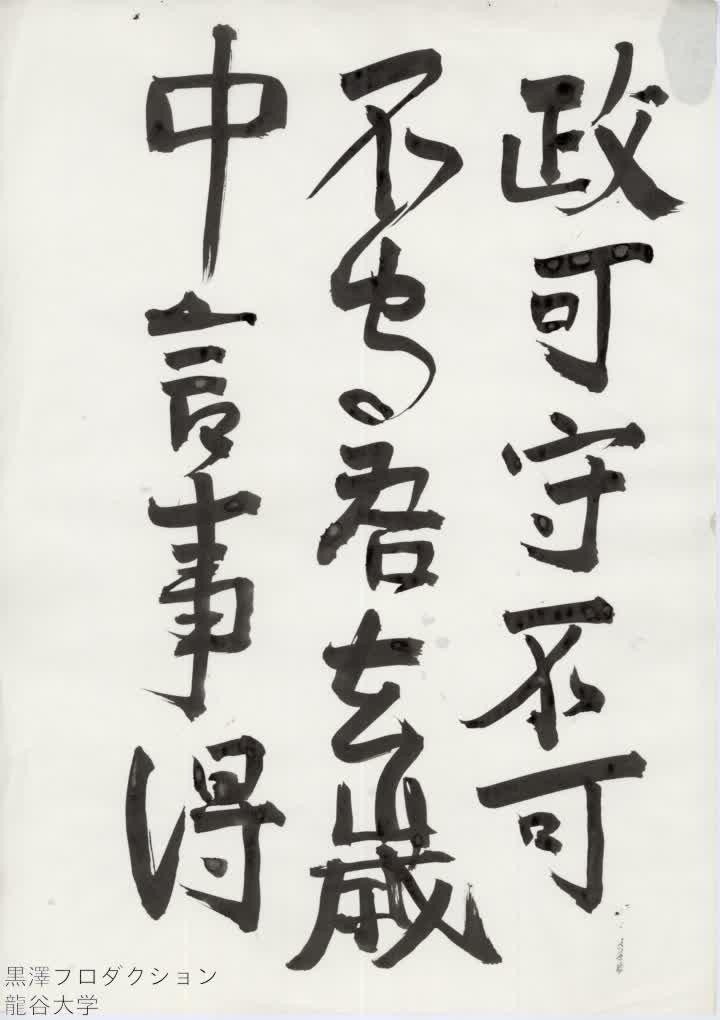 政可守不可
不守吾去歳
中言事得
黒澤プロダクション
龍谷大学